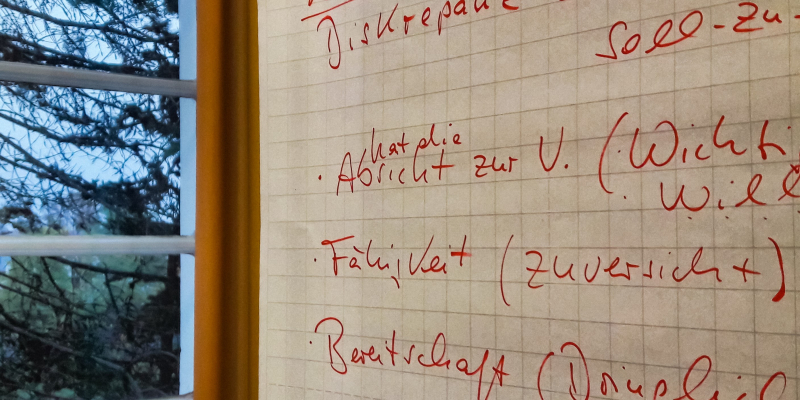 Diskrepanz
Soll-Zu-
hat die
· Absicht zur V. (Wichti
Will
· Fähigkeit (Zuversicht)
· Bereitschaft (Dringlich